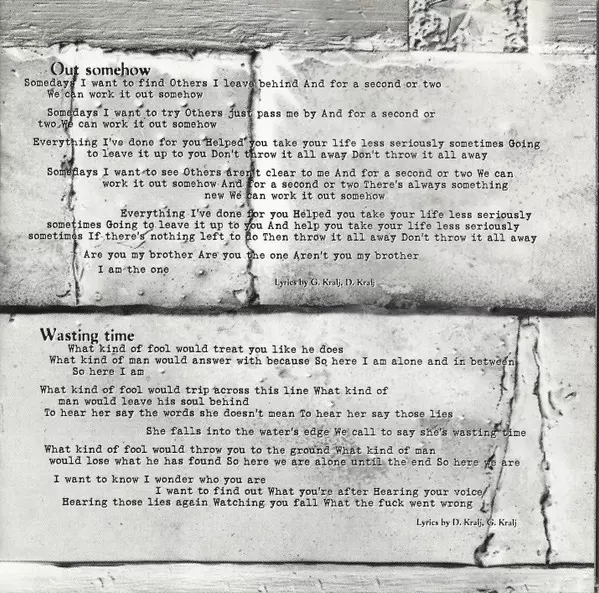 Out somehow
Somedays I want to find Others I leave behind And for a second or two
We can work it out somehow
Somedays I want to try Others just pass me by And for a second or
two We can work it out somehow
Everything I've done for you Helped you take your life less seriously sometimes Going
to leave it up to you Don't throw it all away Don't throw it all away
Somedays I want to see Others aren't clear to me And for a second or two We can
work it out somehow And for a second or two There's always something
new We can work it out somehow
Everything I've done for you Helped you take your life less seriously
sometimes Going to leave it up to you And help you take your life less seriously
sometimes If there's nothing left to do Then throw it all away Don't throw it all away
Are you my brother Are you the one Aren't you my brother
I am the one
Lyrics by G. Kralj, D. Kralj
Wasting time
What kind of fool would treat you like he does
What kind of man would answer with because So here I am alone and in between
So here I am
What kind of fool would trip across this line What kind of
man would leave his soul behind
To hear her say the words she doesn't mean To hear her say those lies
She falls into the water's edge We call to say she's wasting time
What kind of fool would throw you to the ground What kind of man
would lose what he has found So here we are alone until the end So here we are
I want to know I wonder who you are
I want to find out What you're after Hearing your voice
Hearing those lies again Watching you fall What the fuck went wrong
Lyrics by D. Kralj, G. Kralj